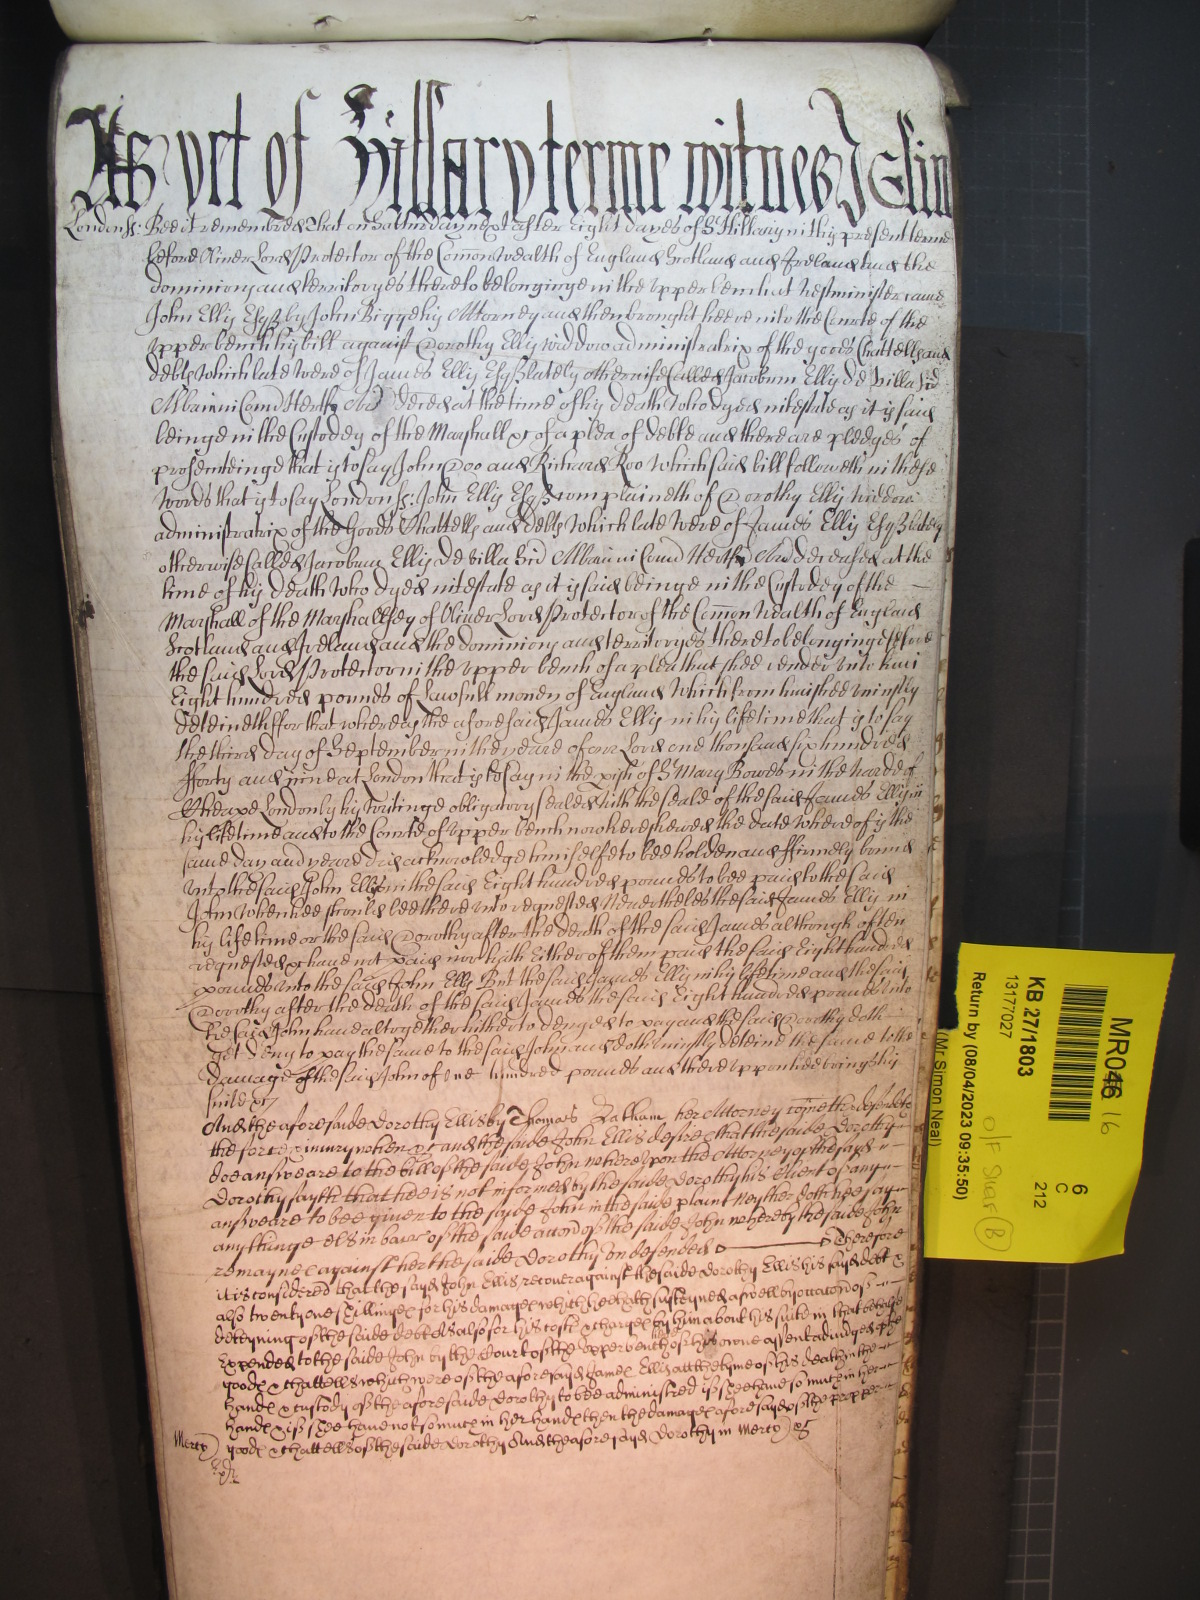 As yet of Hillary terme witnes J Glin
London ss: Bee it remembred That on Satterday next after Eight dayes of St Hillary in this present terme
before Oliver Lord Protector of the Com̄on Wealth of England Scotland and Ireland and the
dominions and territoryes thereto belonginge in the upper bench at Westminister came
John Ellis Esqr by John Bigge his Attorney and then brought heere into the Courte of the
upper bench his bill against Dorothy Ellis widdow administratrix of the goods Chattells and
debts which late were of James Ellis Esqr lately otherwise Called Jacobum Ellis de villa Sci
Albani in Com̄ Hertf Ar̄ deceased at the time of his death who dyed intestate as it is said
beinge in the Custodey of the Marshall &c of a plea of debte and there are pledges of
prosecuteinge that is to say John Doo and Richard Roo Which said bill followeth in these
words that is to say London ss: John Ellis Esqr complaineth of Dorothy Ellis widdow
administratrix of the Goods Chattells and debts which late were of James Ellis Esqr lately
otherwise Called Jacobum Ellis de villa Sci Albani in Com̄ Hertf Ar̄ deceased at the
time of his death who dyed intestate as it is said beinge in the Custodey of the
Marshall of the Marshallsey of Oliver Lord Protector of the Com̄on Wealth of England
Scotland and Ireland and the dominions and territoryes thereto belonginge before
the said Lord Protector in the upper bench of a plea that shee render unto him
Eight hundred pounds of Lawfull money of England which from him shee uniustly
deteineth ffor that whereas the aforesaid James Ellis in his life time that is to say
the third day of September in the yeare of our Lord one thousand six hundred
fforty and nine at London that is to say in the p̱ish of St Mary Bowes in the warde of
Cheape London by his writinge obligatory sealed with the seale of the said James Ellis in
his life time and to the Courte of upper bench now here shewed the date whereof is the
same day and yeare did acknowledge himselfe to bee holden and ffirmely bound
unto the said John Ellis in the said Eight hundred pounds to bee paid to the said
John when hee should bee thereunto requested Neverthelesse the said James Ellis in
his life time or the said Dorothy after the death of the said James although often
requested &c have not paid nor hath Either of them paid the said Eight hundred
pounds unto the said John Ellis But the said James Ellis in his life time and the said
Dorothy after the death of the said James the said Eight hundred pounds unto
the said John have altogether hitherto denyed to pay and the said Dorothy doth
yet deny to pay the same to the said John and doth uniustly deteine the same to the
damage of the said John of one hundred pounds and thereupon hee brings his
suite &c
And the aforesaide Dorothy Ellis by Thomas Latham her Attorney cometh & defendeth
the force & iniury when &c and the saide John Ellis desires that the saide Dorothy
doe answeare to the bill of the saide John whereupon the Attorney of the sayd
Dorothy sayth that hee is not informed by the saide Dorothy his Client of any
answeare to bee given to the sayde John in the saide plaint Neyther doth hee say
any thinge els in barr of the saide accōn of the saide John whereby the saide John
remaynes against her the saide Dorothy undefended Therefore
it is considered that the sayd John Ellis recover against the saide Dorothy Ellis his sayd debt &
also twenty one shillinges for his damages which hee hath susteyned aswell by occacōn of
deteyning of the saide debt as also for his costs & charges by him about his suite in that behalfe
Expended to the saide John by the Court of the upper bench of his owne assent adiudged of the
goods & chattells which were of the aforesayd James Ellis att the tyme of his death in the
hands & custody of the aforesaide Dorothy to bee administred if shee have so much in her
hands & if shee have not so much in her hands then the damages aforesayd of the proper
goods & chattells of the saide Dorothy And the aforesayd Dorothy in Mercy &c
Mercy
MR046 16
KB 27/1803
13177027
Return by (08/04/2023 09:35:50)
(Mr Simon Neal)
6
C
212
O/F
B